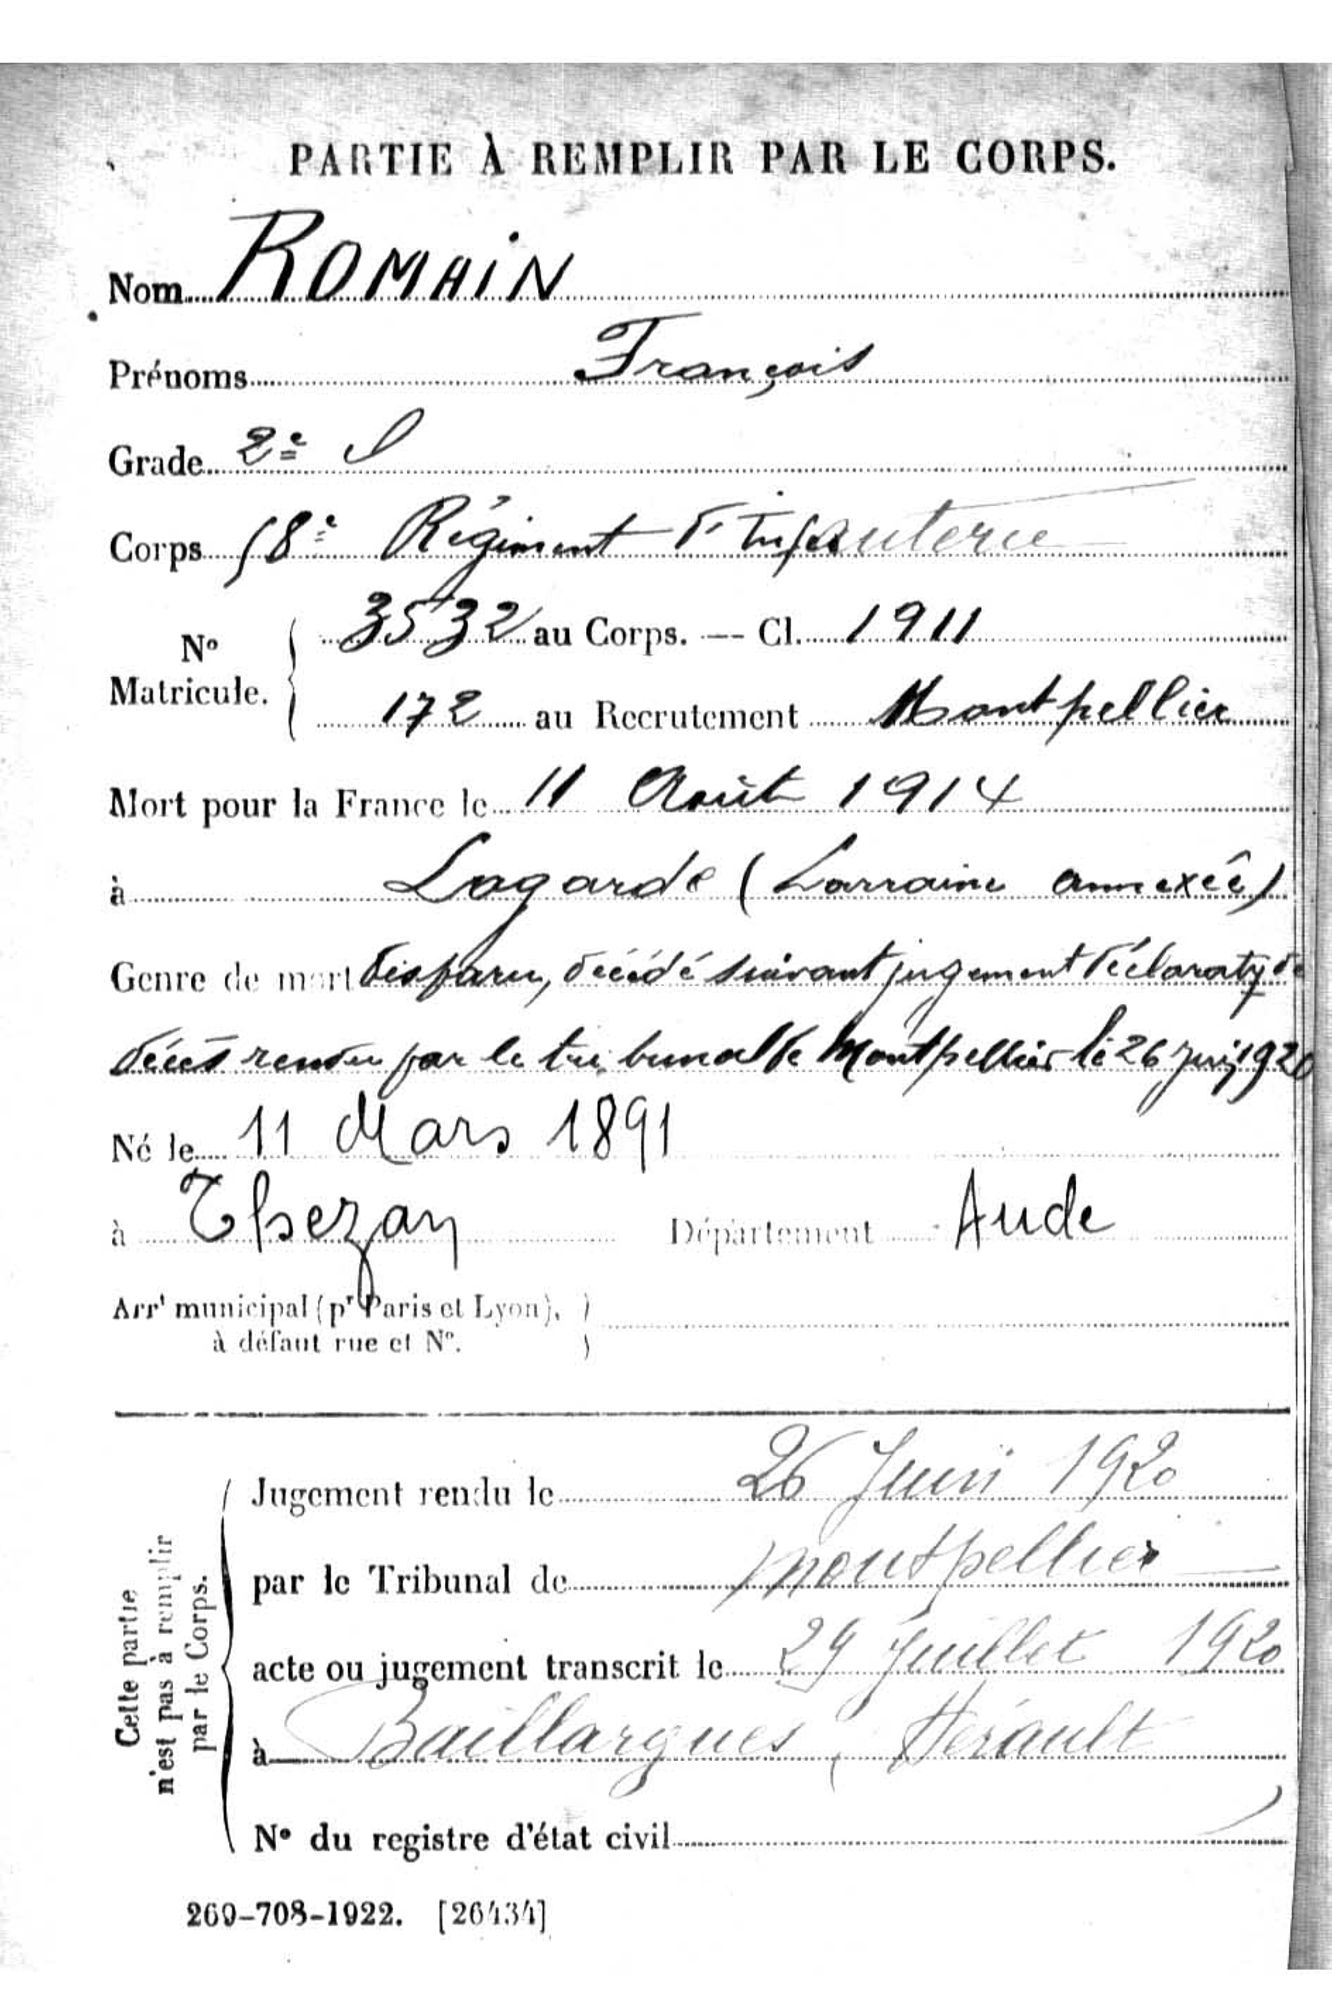 PARTIE À REMPLIR PAR LE CORPS.
Nom ROMAIN
Prénoms François
Grade 2e S
Corps 58e Régiment d'Infanterie
No Matricule. 3532 au Corps. — Cl. 1911
172 au Recrutement Montpellier
Mort pour la France le 11 Août 1914
à Lagarde (Lorraine annexée)
Genre de mort disparu, décédé suivant jugement déclaratif de
décès rendu par le tribunal de Montpellier le 26 juin 1920
Né le 11 Mars 1891
à Thezan Département Aude
Arrt municipal (pr Paris et Lyon),
à défaut rue et No.
Cette partie
n'est pas à remplir
par le Corps.
Jugement rendu le 26 Juin 1920
par le Tribunal de Montpellier
acte ou jugement transcrit le 29 Juillet 1920
à Baillargues, Hérault
No du registre d'état civil
269-708-1922. [26434]